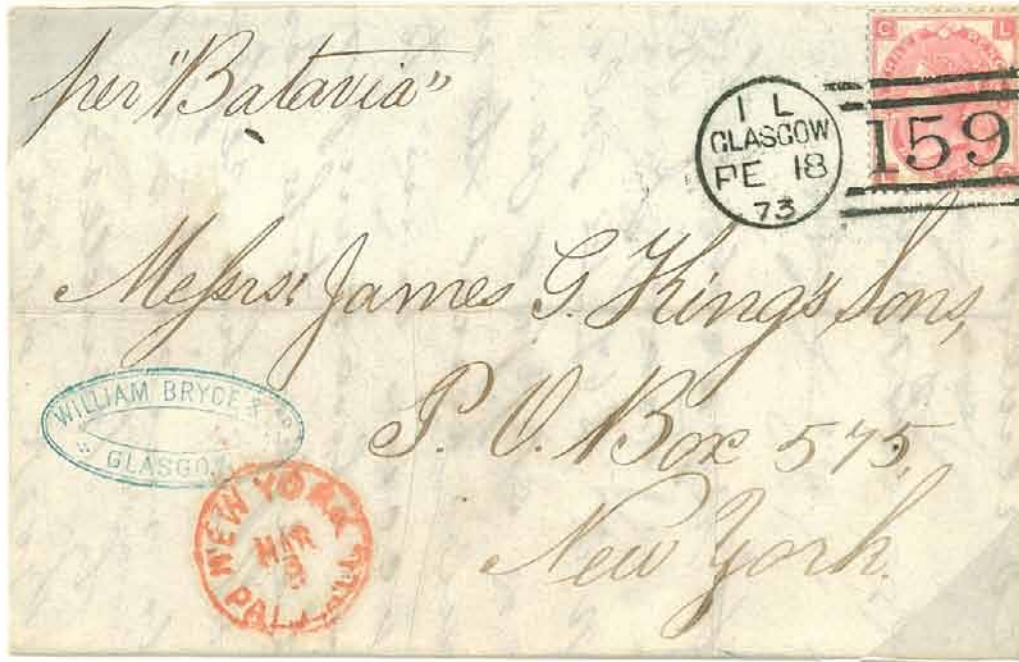 per "Batavia"
C L
1 L
GLASGOW
FE 18
73
159
Messrs. James G. King's Sons,
P. O. Box 575,
New York.
WILLIAM BRYCE &
GLASGO
NEW YORK
MAR
PAID ALL